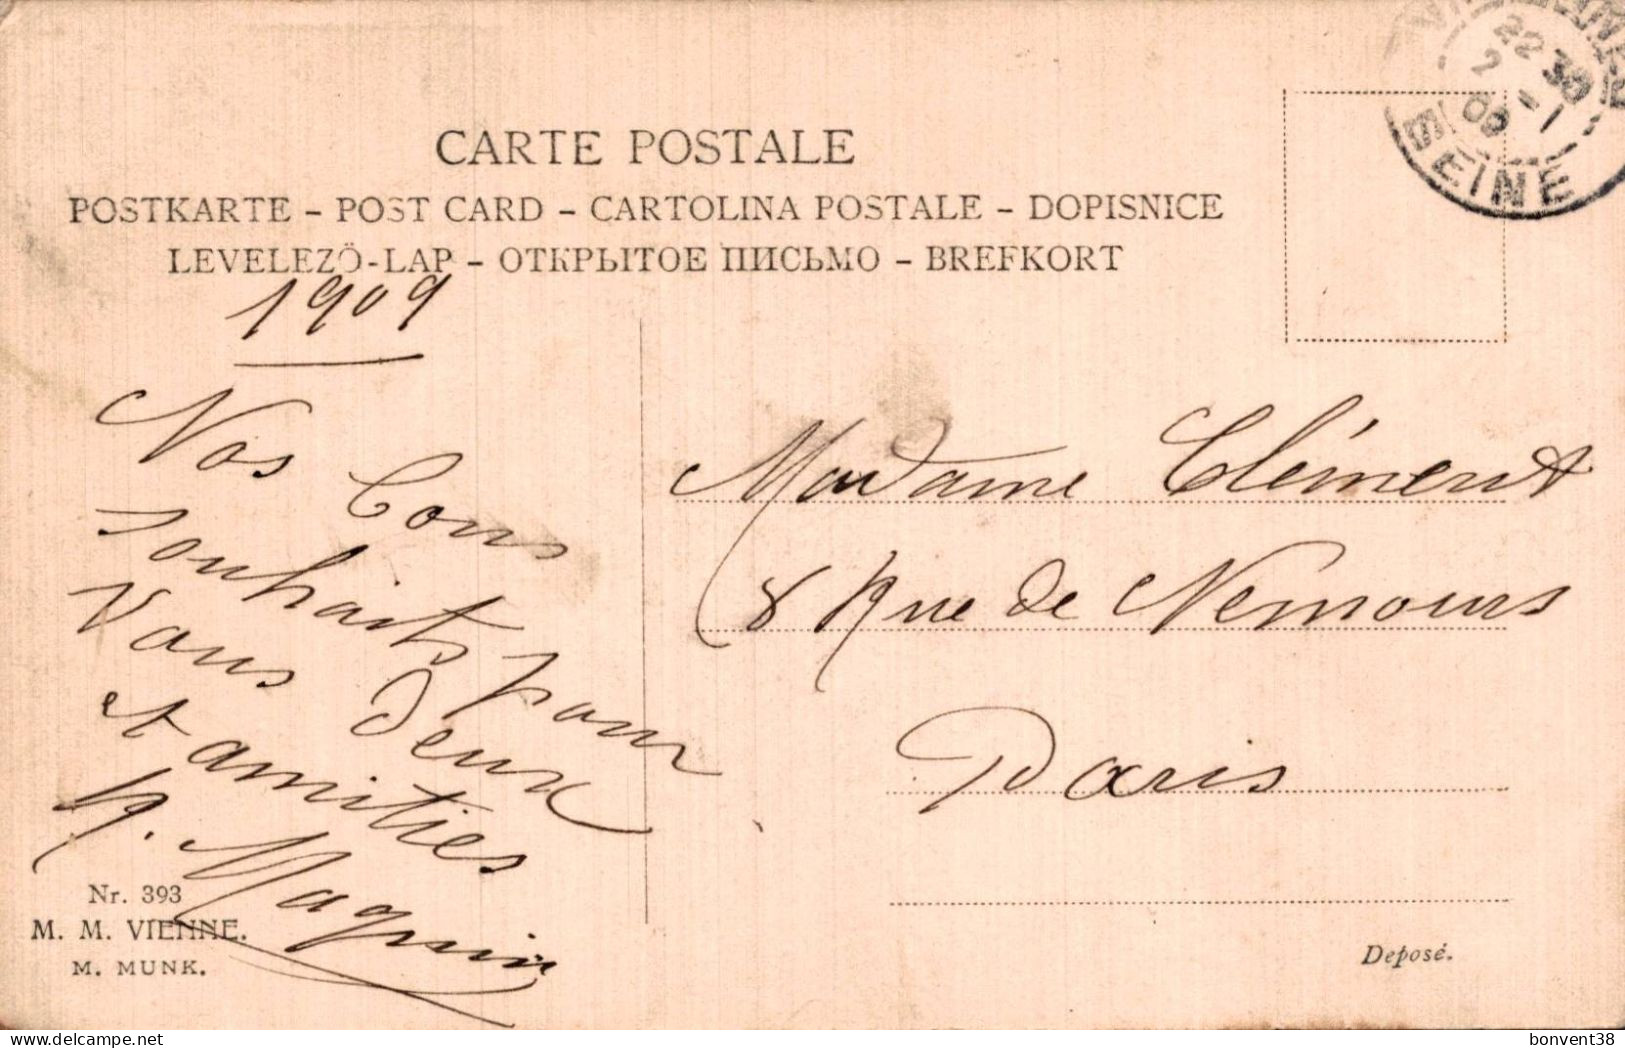 CARTE POSTALE
POSTKARTE – POST CARD – CARTOLINA POSTALE – DOPISNICE
LEVELEZŐ-LAP – ОТКРЫТОЕ ПИСЬМО – BREFKORT
22 30
2 - 1
09
SEINE
1909
Nos bons
souhaits pour
vous deux
et amitiés
H. Maquin
Madame Clément
8 Rue de Nemours
Paris
Nr. 393
M. M. VIENNE.
M. MUNK.
Deposé.
delcampe.net
bonvent38